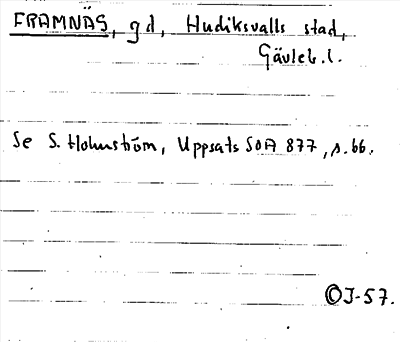 FRAMNÄS, gd, Hudiksvalls stad,
Gävleb.l.
Se S. Holmström, Uppsats SOA 877, s. 66.
OJ-57.